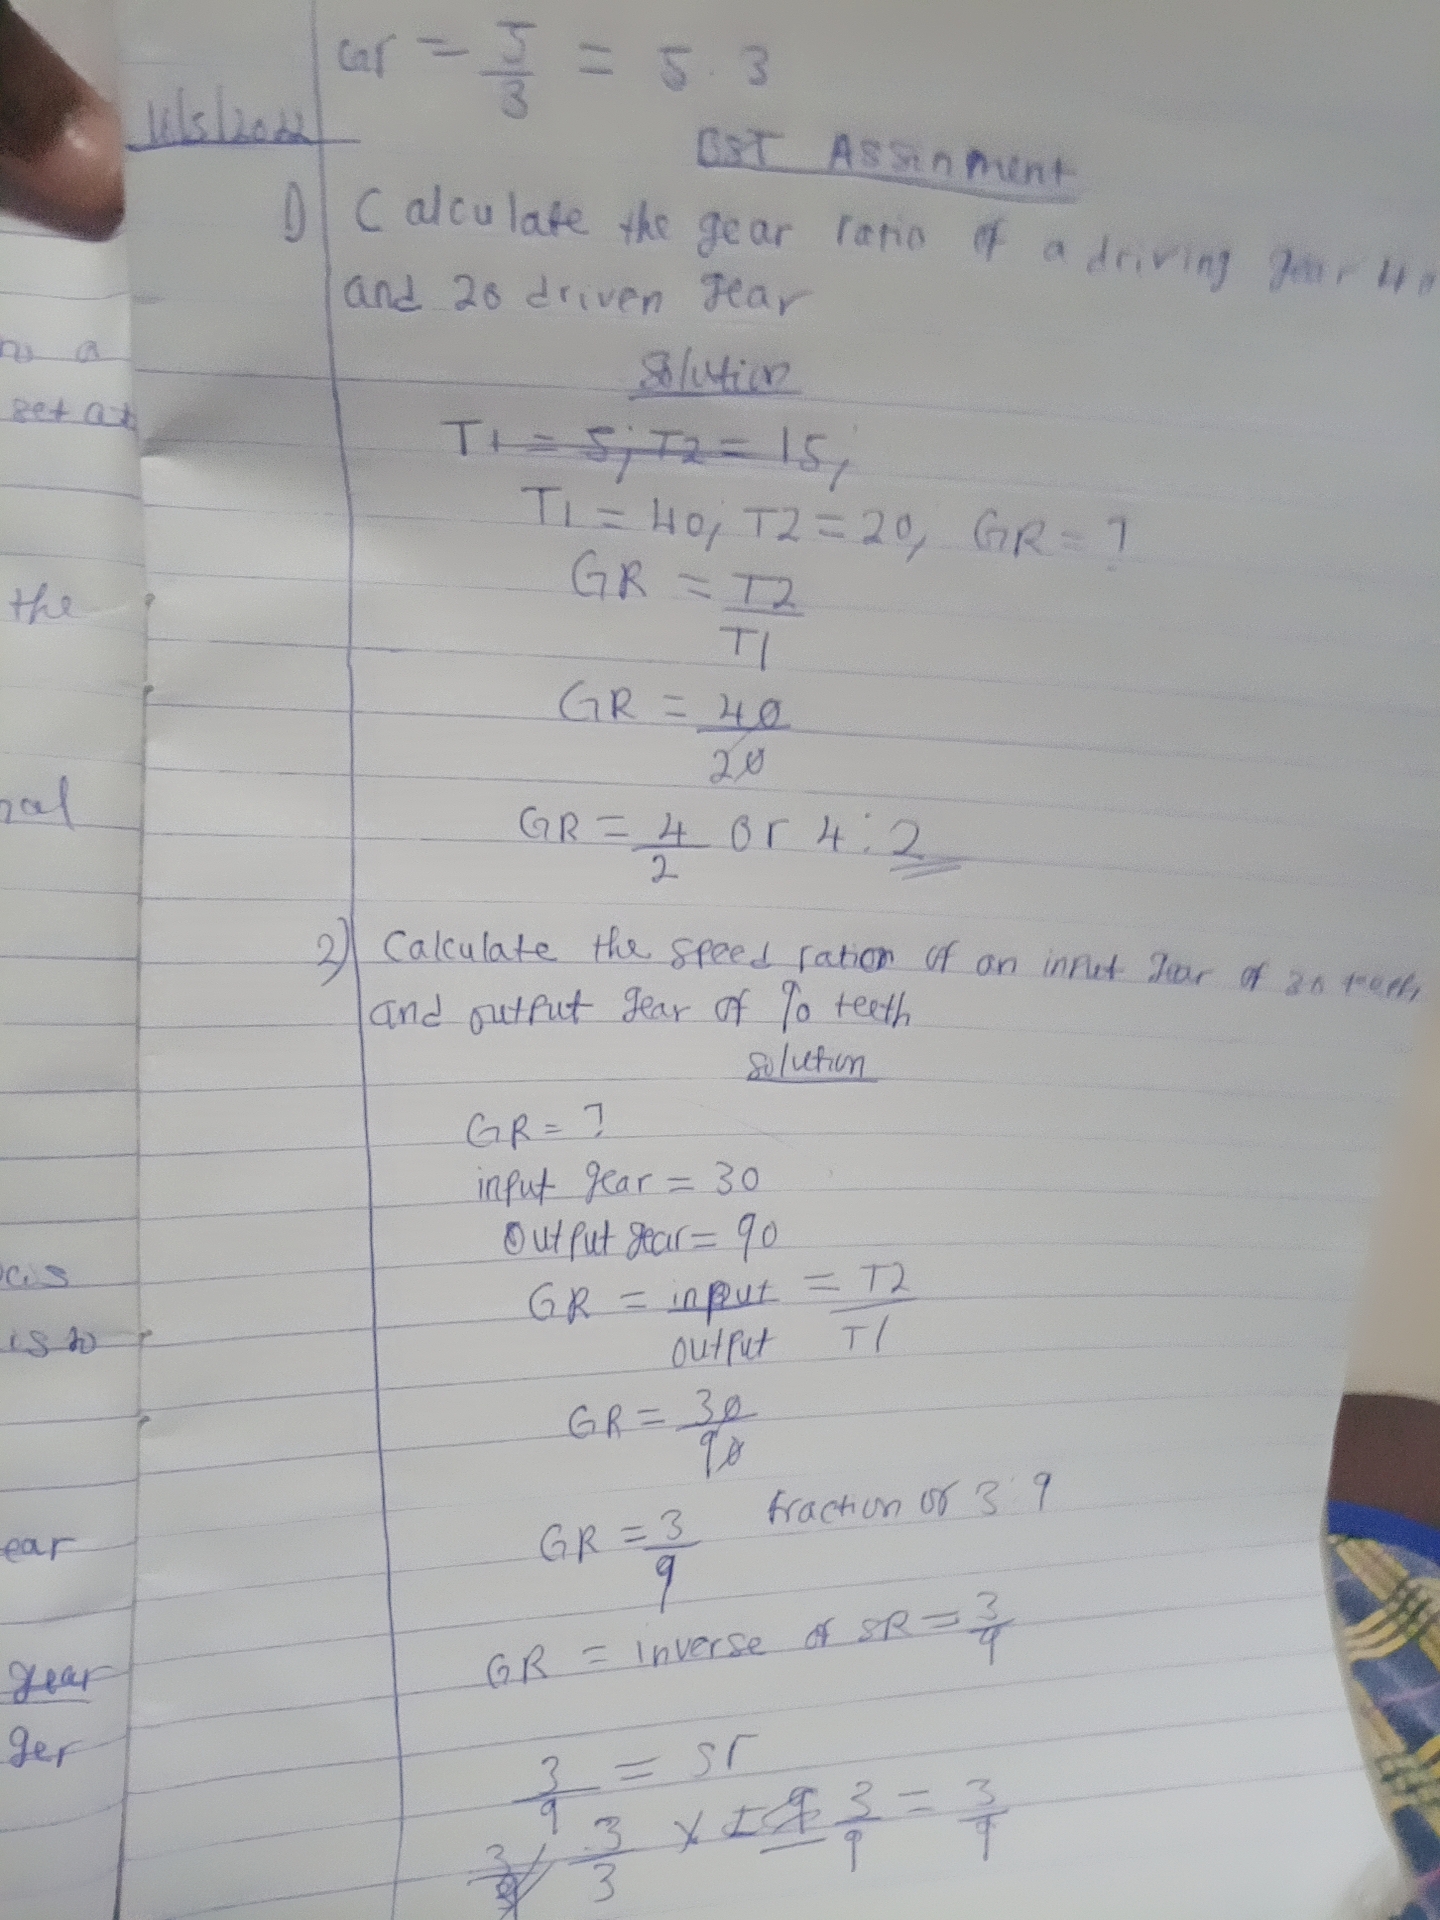 Gar = 5/3 = 5.3
16/5/2022
BST Assinment
1) Calculate the gear ratio of a driving gear 40
and 20 driven gear
Solution
T1 = 5; T2 = 15;
T1 = 40; T2 = 20, GR = ?
GR = T2
T1
GR = 40
20
GR = 4 or 4:2
2
2) Calculate the speed ration of an input gear of 30 teeth
and output gear of 90 teeth
solution
GR = ?
input gear = 30
Output gear = 90
GR = input = T2
output T1
GR = 30
90
GR = 3 fraction or 3:9
9
GR = inverse of SR = 3
9
3 = Sr
9
3 3 = 3
3 9 9
no a
set at
the
nal
is to
ear
gear
ger